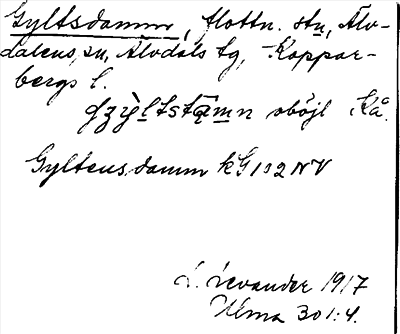 Gyltsdamm, flottn. stn, Älv-
dalens sn, Älvdals tg, Koppar-
bergs l.
oböjl Kå.
Gyltens damm kG 102 NV
L. Levander 1917
Ulma 301:4.